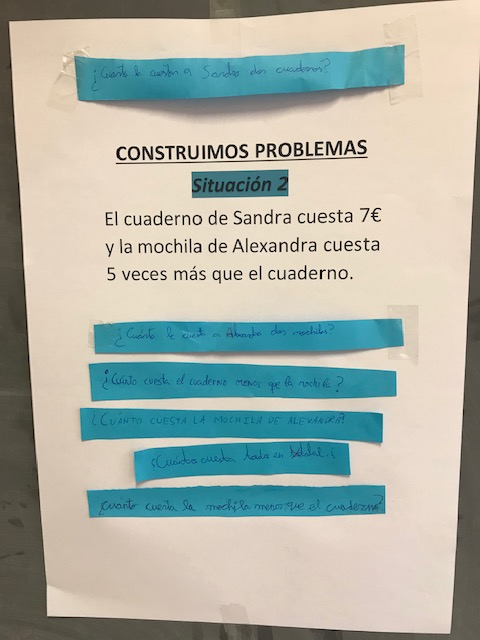 ¿Cuánto le cuestan a Sandra dos cuadernos?
CONSTRUIMOS PROBLEMAS
Situación 2
El cuaderno de Sandra cuesta 7€
y la mochila de Alexandra cuesta
5 veces más que el cuaderno.
¿Cuánto le cuesta a Alexandra dos mochilas?
¿Cuánto cuesta el cuaderno menos que la mochila?
¿CUÁNTO CUESTA LA MOCHILA DE ALEXANDRA?
cuesta en total
¿Cuánto cuesta la mochila menos que el cuaderno?